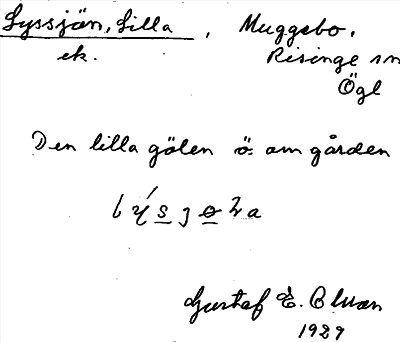 Lyssjön, Lilla, Muggebo.
ek. Risinge sn
Ögl
Den lilla gölen ö. om gården
Gustaf E. Bluan
1929